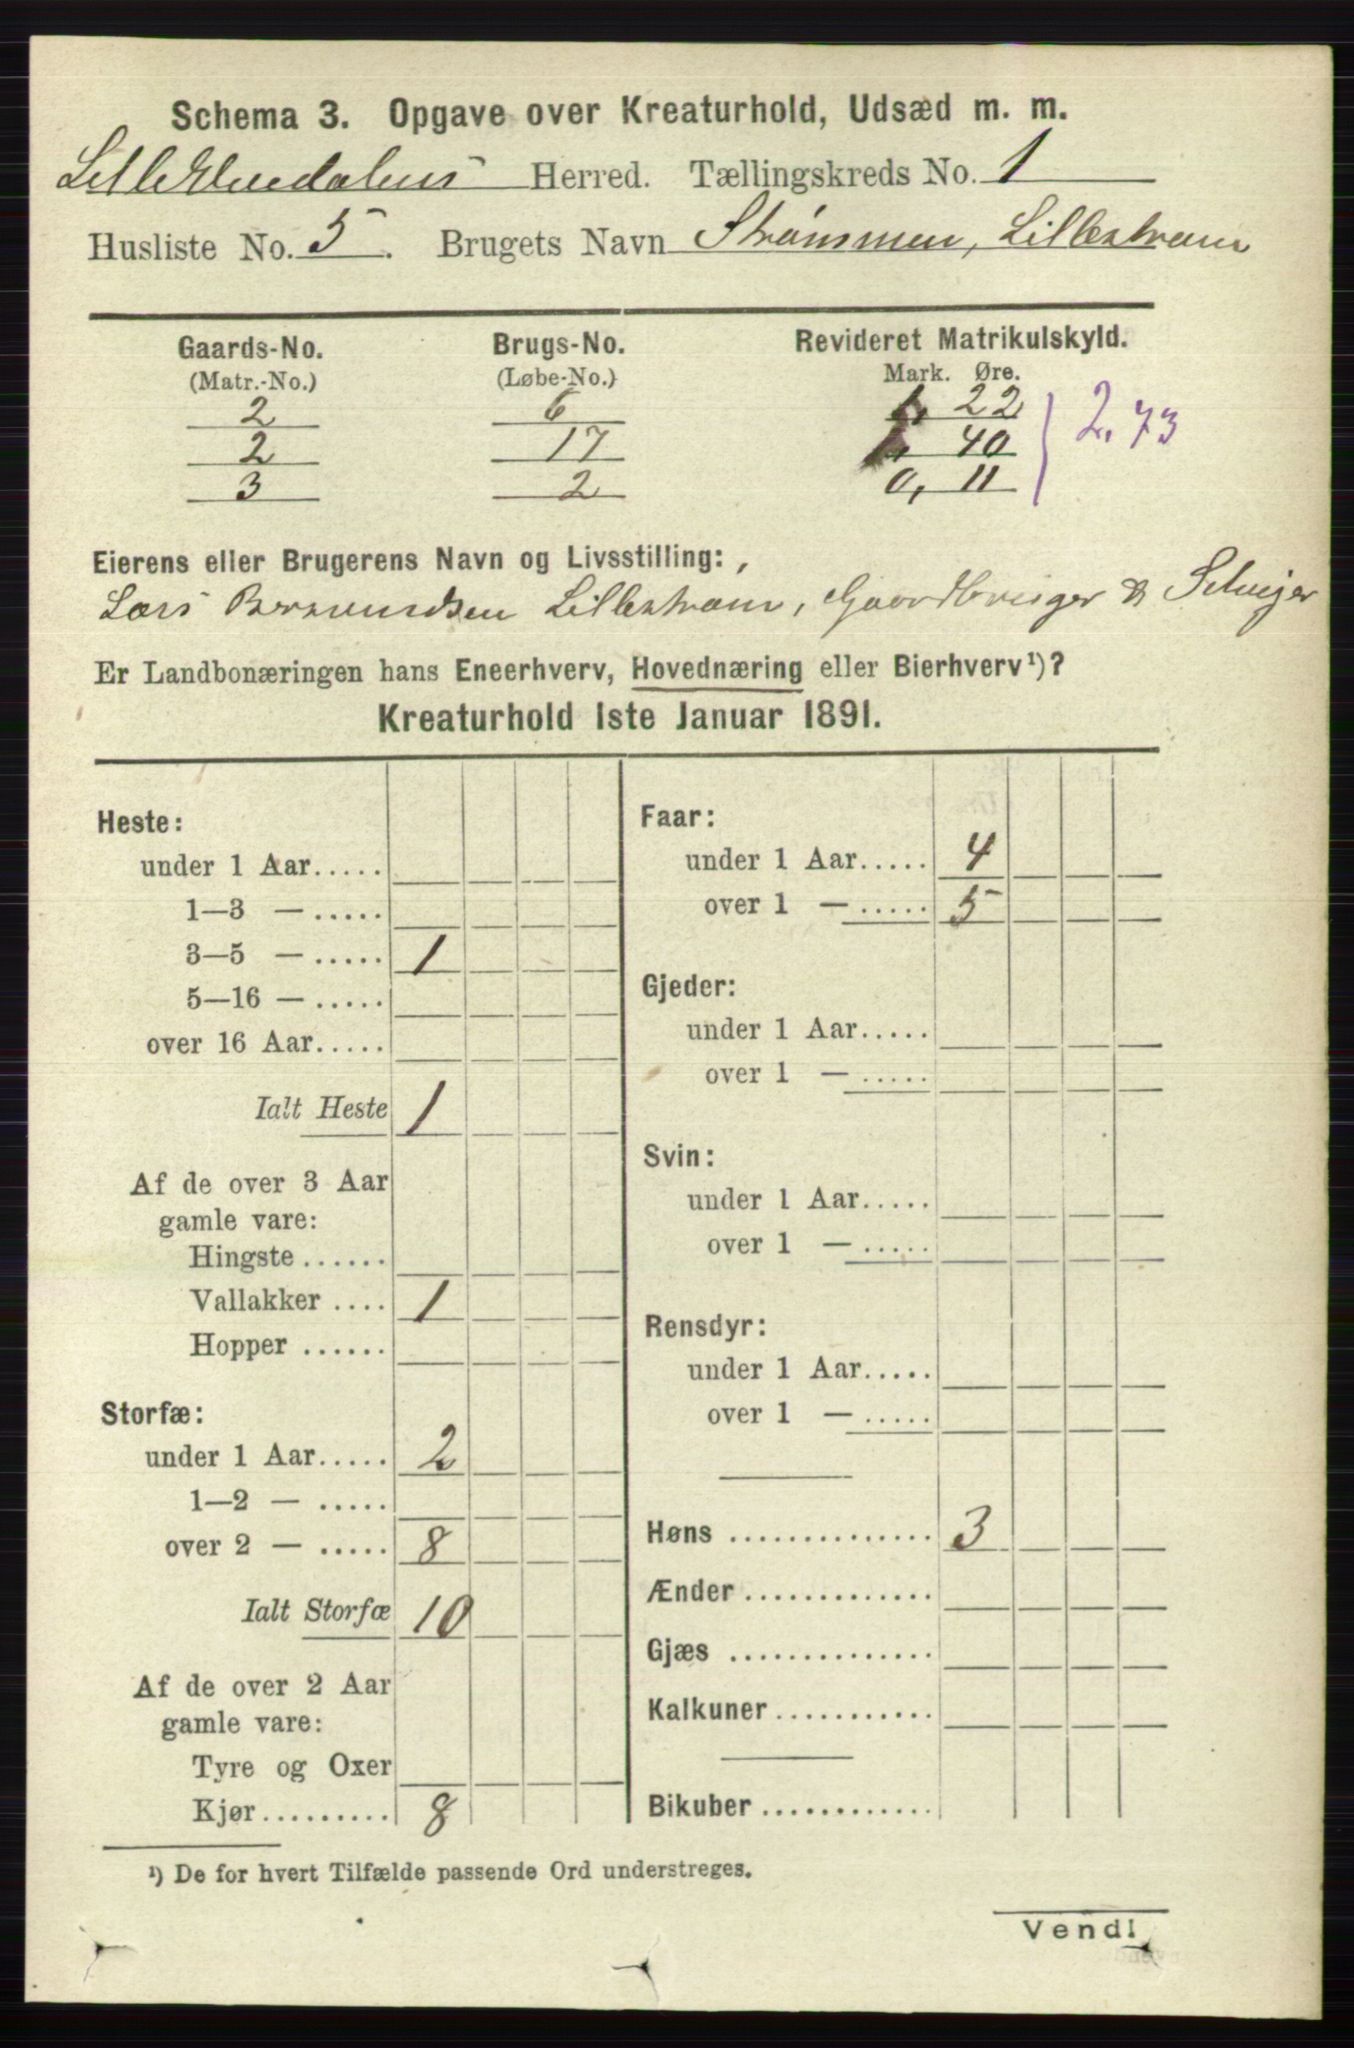 Schema 3. Opgave over Kreaturhold, Udsæd m. m.
Lille Elvedalens Herred. Tællingskreds No. 1
Husliste No. 5. Brugets Navn Strømmen, Lillestrøm
Gaards-No. Brugs-No. Revideret Matrikulskyld.
(Matr.-No.) (Løbe-No.) Mark. Øre.
2 6 1, 22
2 17 1, 40 2,73
3 2 0, 11
Eierens eller Brugerens Navn og Livsstilling:,
Lars Lillestrøm, Gaardbruger & Selveier
Er Landbonæringen hans Eneerhverv, Hovednæring eller Bierhverv¹)?
Kreaturhold 1ste Januar 1891.
Heste:
under 1 Aar.....
1—3 — .....
3—5 — ..... 1
5—16 — .....
over 16 Aar.....
Ialt Heste 1
Af de over 3 Aar
gamle vare:
Hingste ......
Vallakker .... 1
Hopper ......
Storfæ:
under 1 Aar..... 2
1—2 — .....
over 2 — ..... 8
Ialt Storfæ 10
Af de over 2 Aar
gamle vare:
Tyre og Oxer
Kjør......... 8
Faar:
under 1 Aar..... 4
over 1 — ..... 5
Gjeder:
under 1 Aar.....
over 1 — .....
Svin:
under 1 Aar.....
over 1 — .....
Rensdyr:
under 1 Aar.....
over 1 — .....
Høns .............. 3
Ænder.............
Gjæs ..............
Kalkuner...........
Bikuber ............
¹) De for hvert Tilfælde passende Ord understreges.
Vend!